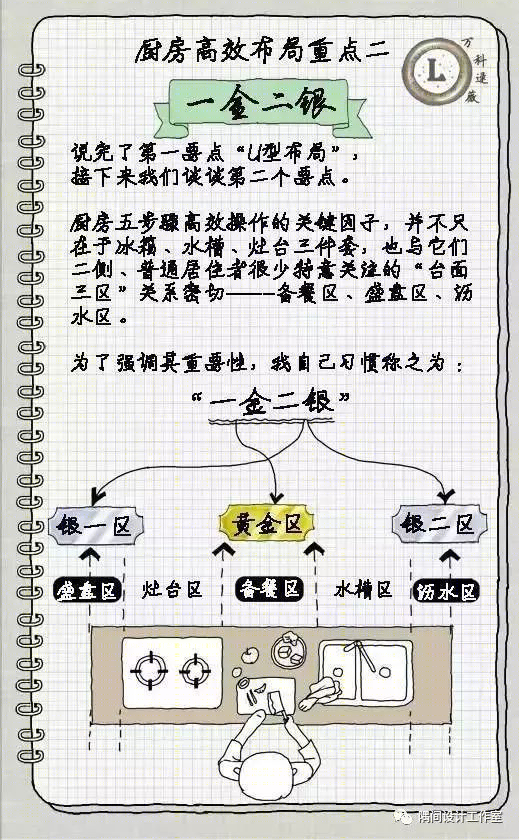 厨房高效布局重点二
万科逯薇
L
一金二银
说完了第一要点“U型布局”，
接下来我们谈谈第二个要点。
厨房五步骤高效操作的关键因子，并不只
在于冰箱、水槽、灶台三件套，也与它们
二侧、普通居住者很少特意关注的“台面
三区”关系密切——备餐区、盛盘区、沥
水区。
为了强调其重要性，我自己习惯称之为：
“一金二银”
银一区 黄金区 银二区
盛盘区 灶台区 备餐区 水槽区 沥水区
隋间设计工作室